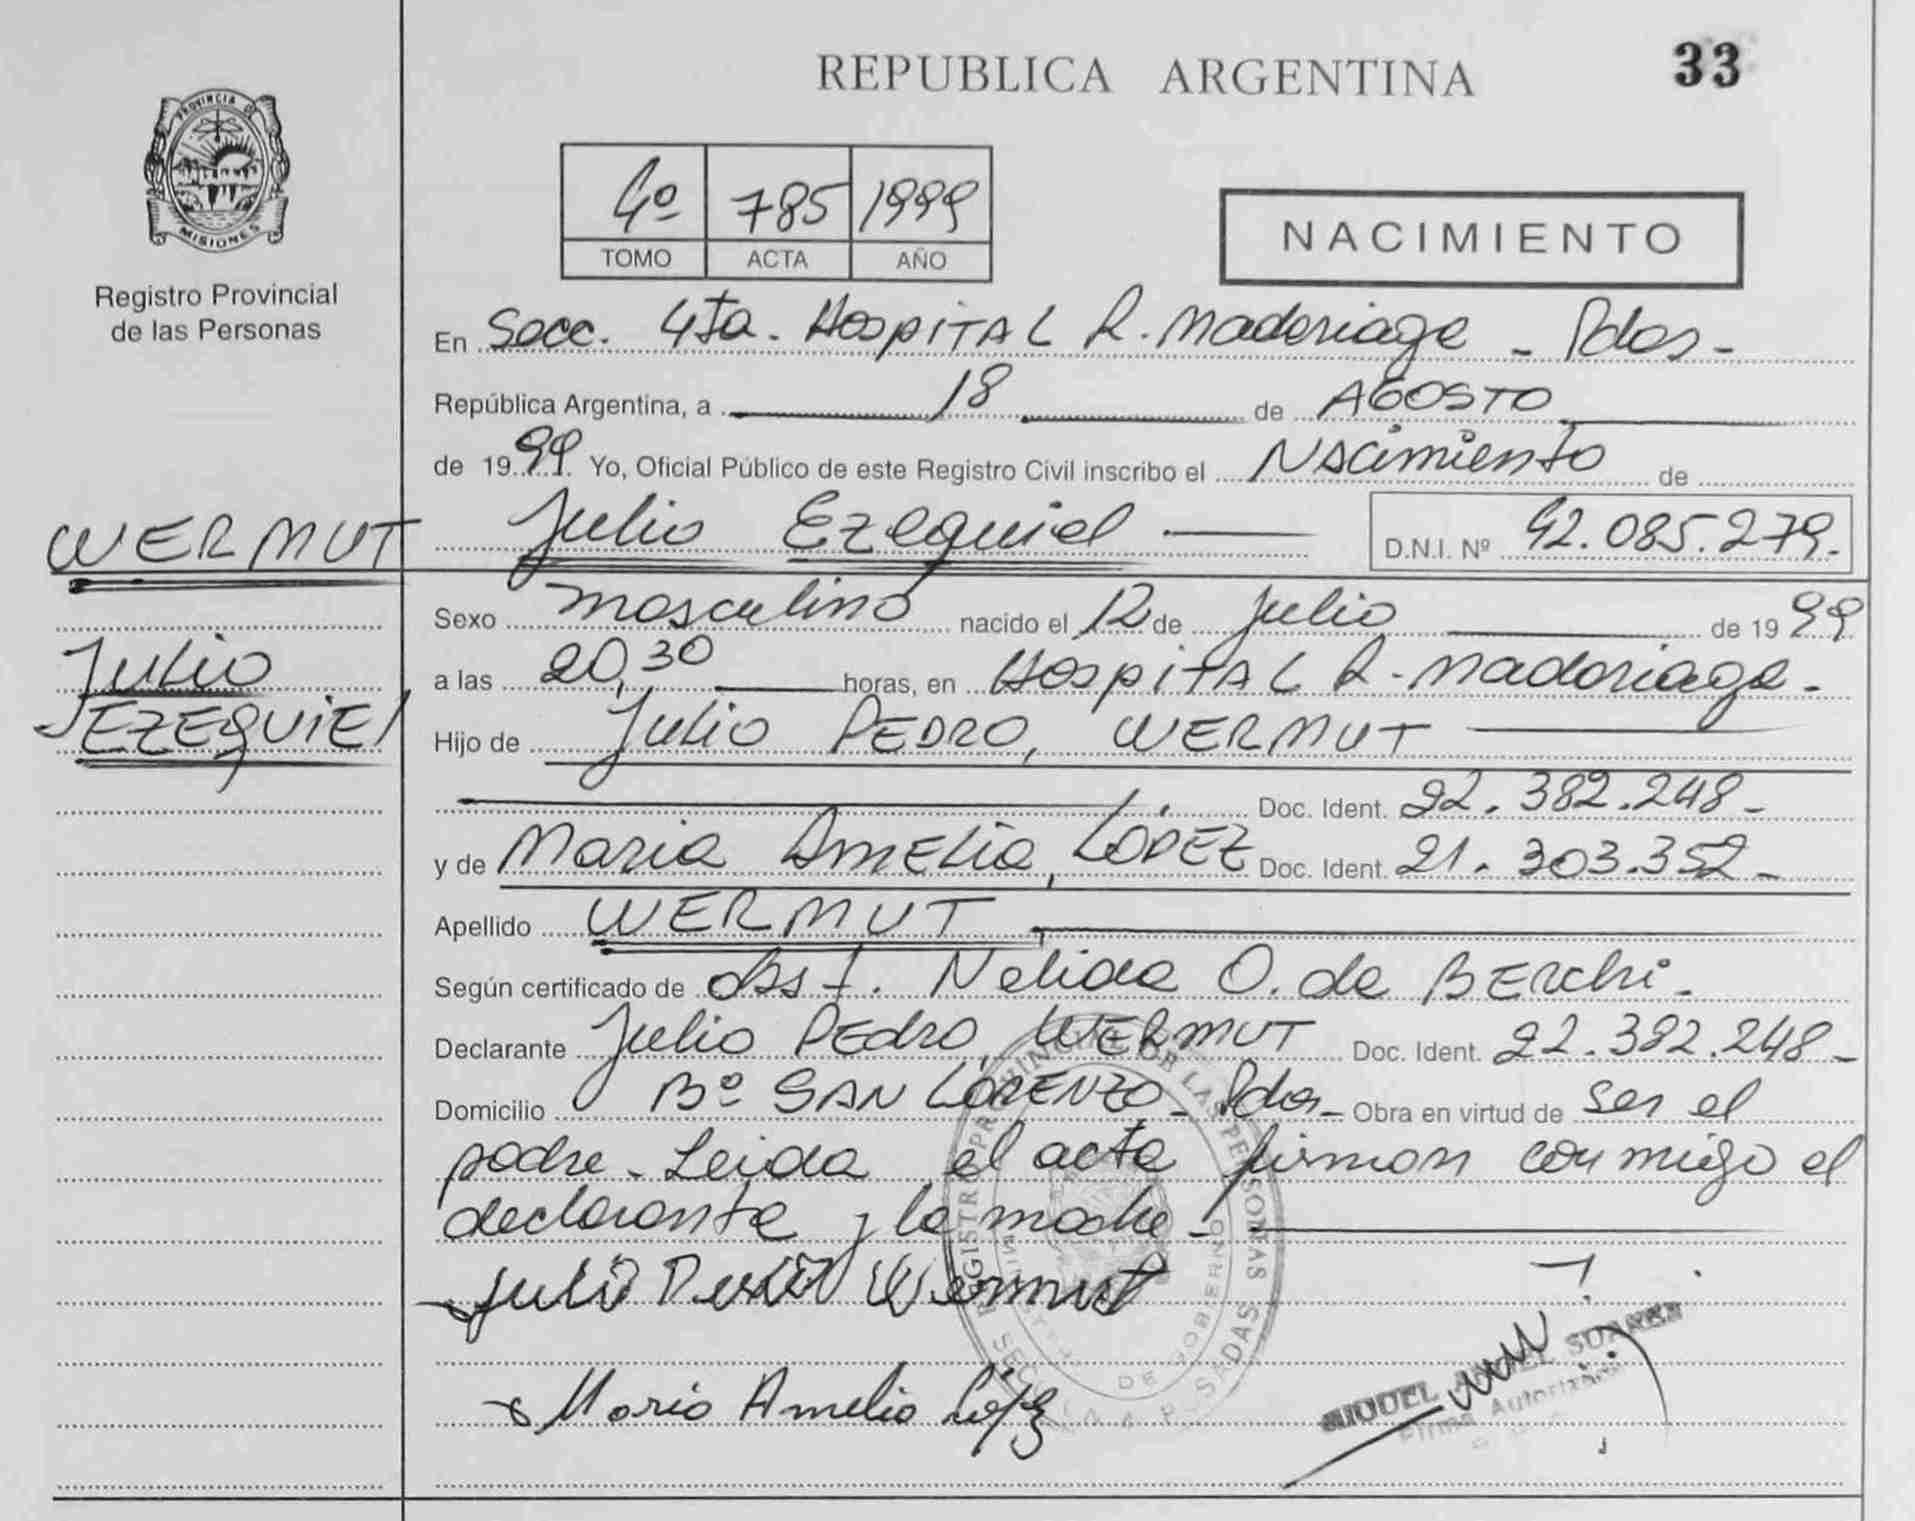 REPUBLICA ARGENTINA
33
PROVINCIA DE
MISIONES
Registro Provincial
de las Personas
4º 785 1999
TOMO ACTA AÑO
NACIMIENTO
En Secc. 4ta. Hospital R. Madariaga - Pdas -
República Argentina, a 18 de AGOSTO
de 1999. Yo, Oficial Público de este Registro Civil inscribo el Nacimiento de
WERMUT
Julio Ezequiel
D.N.I. Nº 42.085.279.
Sexo masculino nacido el 12 de Julio de 1999
Julio
EZEQUIEL
a las 20,30 horas, en Hospital R. Madariaga.
Hijo de Julio PEDRO, WERMUT
Doc. Ident. 22.382.248-
y de Maria Amelia, LÓPEZ Doc. Ident. 21.303.352-
Apellido WERMUT
Según certificado de Obst. Nelida O. de Berchi.
Declarante Julio Pedro, WERMUT Doc. Ident. 22.382.248-
Domicilio Bº SAN LORENZO - Pdas - Obra en virtud de ser el
padre. Leida el acta firman conmigo el
declarante y la madre.
Julio Pedro Wermut
Maria Amelia López
REGISTRO PROVINCIAL DE LAS PERSONAS
DE GOBIERNO
POSADAS
MIGUEL ANGEL SUAREZ
Firma Autorizada